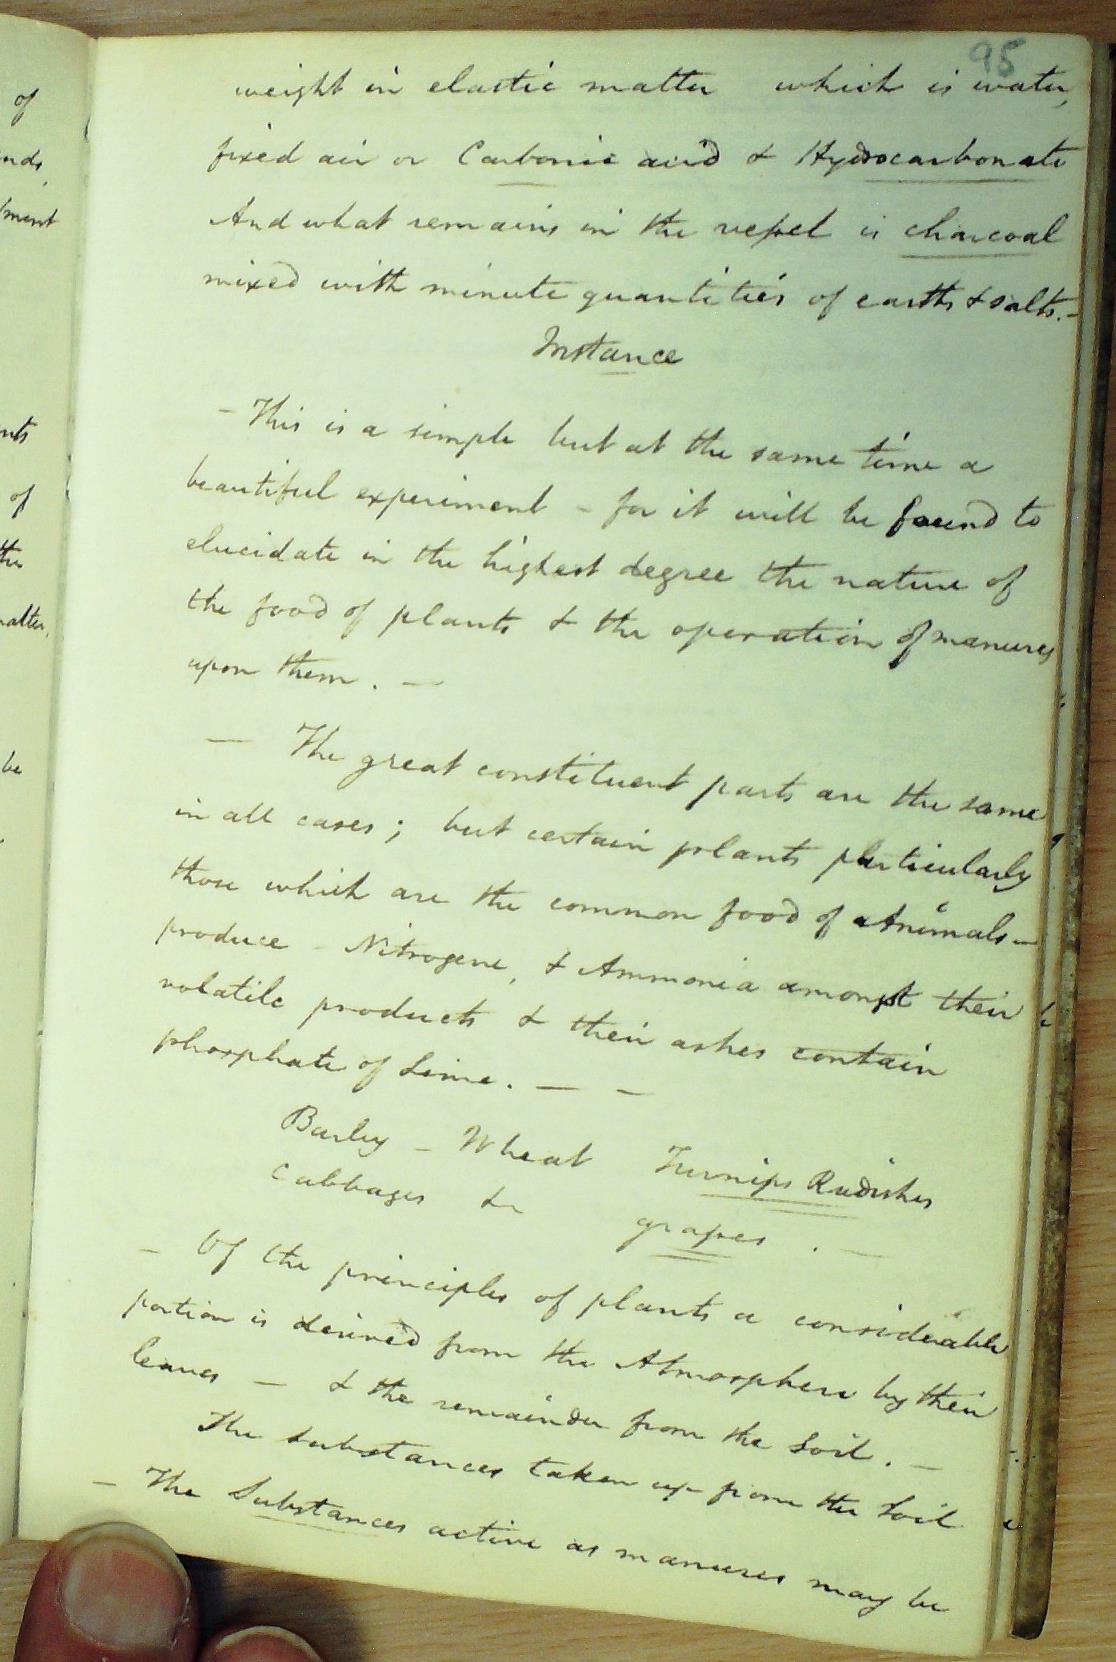 95
weight in elastic matter which is water,
fixed air or Carbonic acid & Hydrocarbonate
And what remains in the vessel is charcoal
mixed with minute quantities of earths & salts. -
Instance
- This is a simple but at the same time a
beautiful experiment - for it will be found to
elucidate in the highest degree the nature of
the food of plants & the operation of manures
upon them. -
- The great constituent parts are the same
in all cases; but certain plants particularly
those which are the common food of Animals -
produce - Nitrogene, & Ammonia amongst their
volatile products & their ashes contain
phosphate of Lime. - -
Barley - Wheat Turnips Radishes
Cabbages &c grapes. -
- Of the principles of plants a considerable
portion is derived from the Atmosphere by their
leaves - & the remainder from the Soil. -
The substances taken up from the Soil
- The Substances active as manures may be
of
nds,
ment
nts
of
the
matter,
be